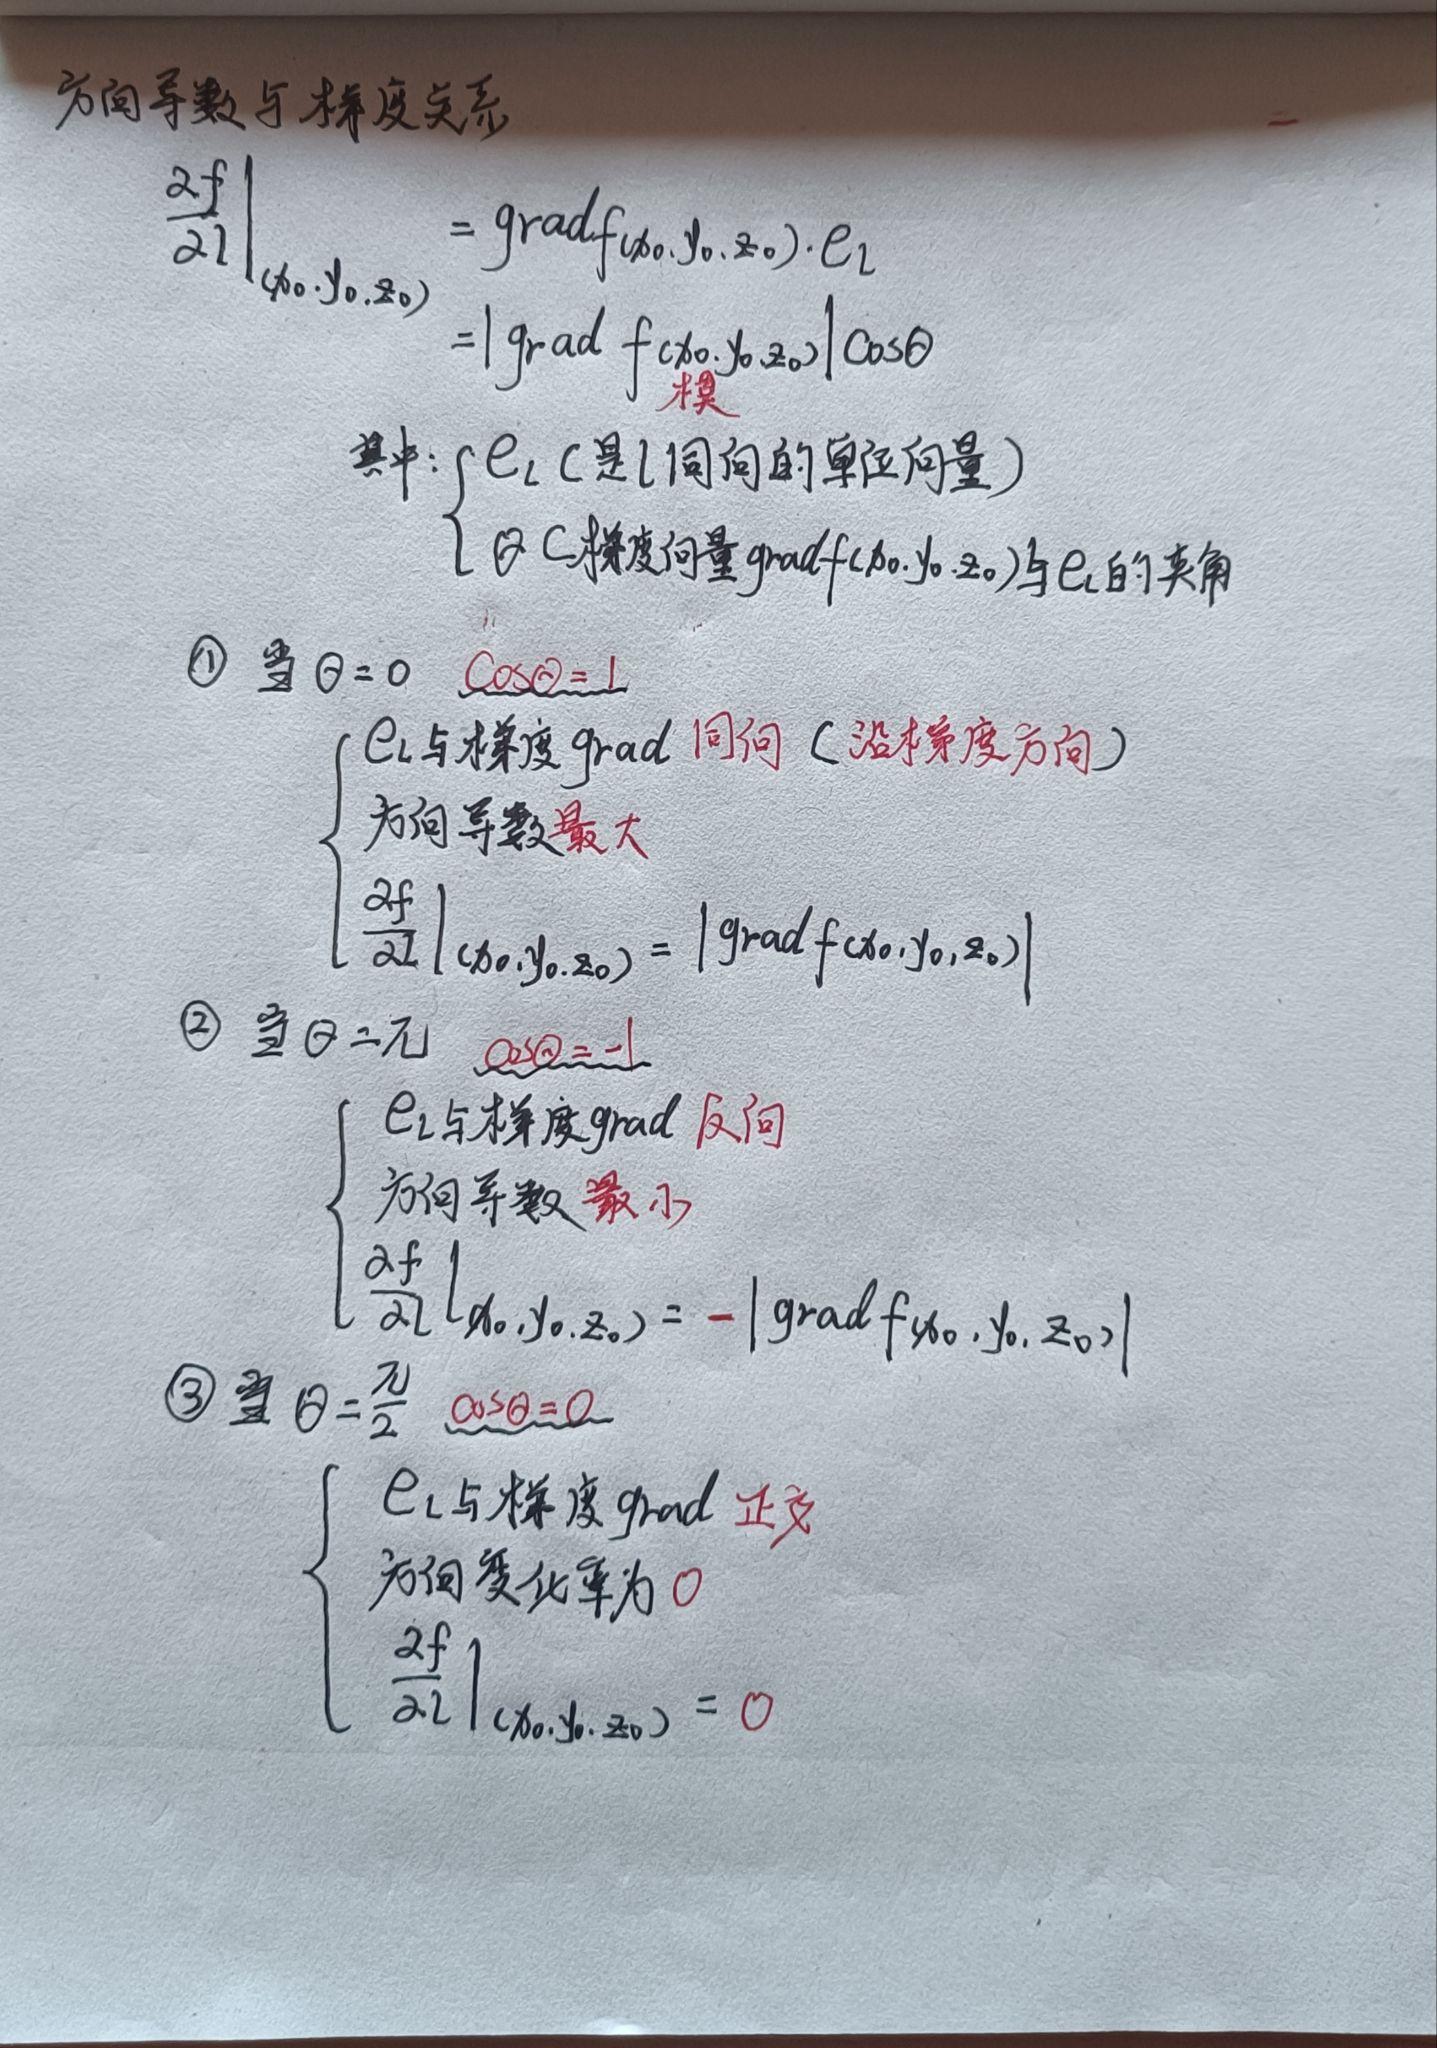 方向导数与梯度关系
∂f/∂l|(x₀.y₀.z₀) = gradf(x₀.y₀.z₀)·eₗ
=|grad f(x₀.y₀.z₀)|cosθ
模
其中:{eₗ(是l同向的单位向量)
θ(梯度向量gradf(x₀.y₀.z₀)与eₗ的夹角
① 当θ=0 cosθ=1
eₗ与梯度grad 同向(沿梯度方向)
方向导数最大
∂f/∂l|(x₀.y₀.z₀) = |gradf(x₀.y₀,z₀)|
② 当θ=π cosθ=-1
eₗ与梯度grad 反向
方向导数最小
∂f/∂l|(x₀.y₀.z₀) = -|gradf(x₀.y₀.z₀)|
③ 当θ=π/2 cosθ=0
eₗ与梯度grad 正交
方向变化率为0
∂f/∂l|(x₀.y₀.z₀) = 0